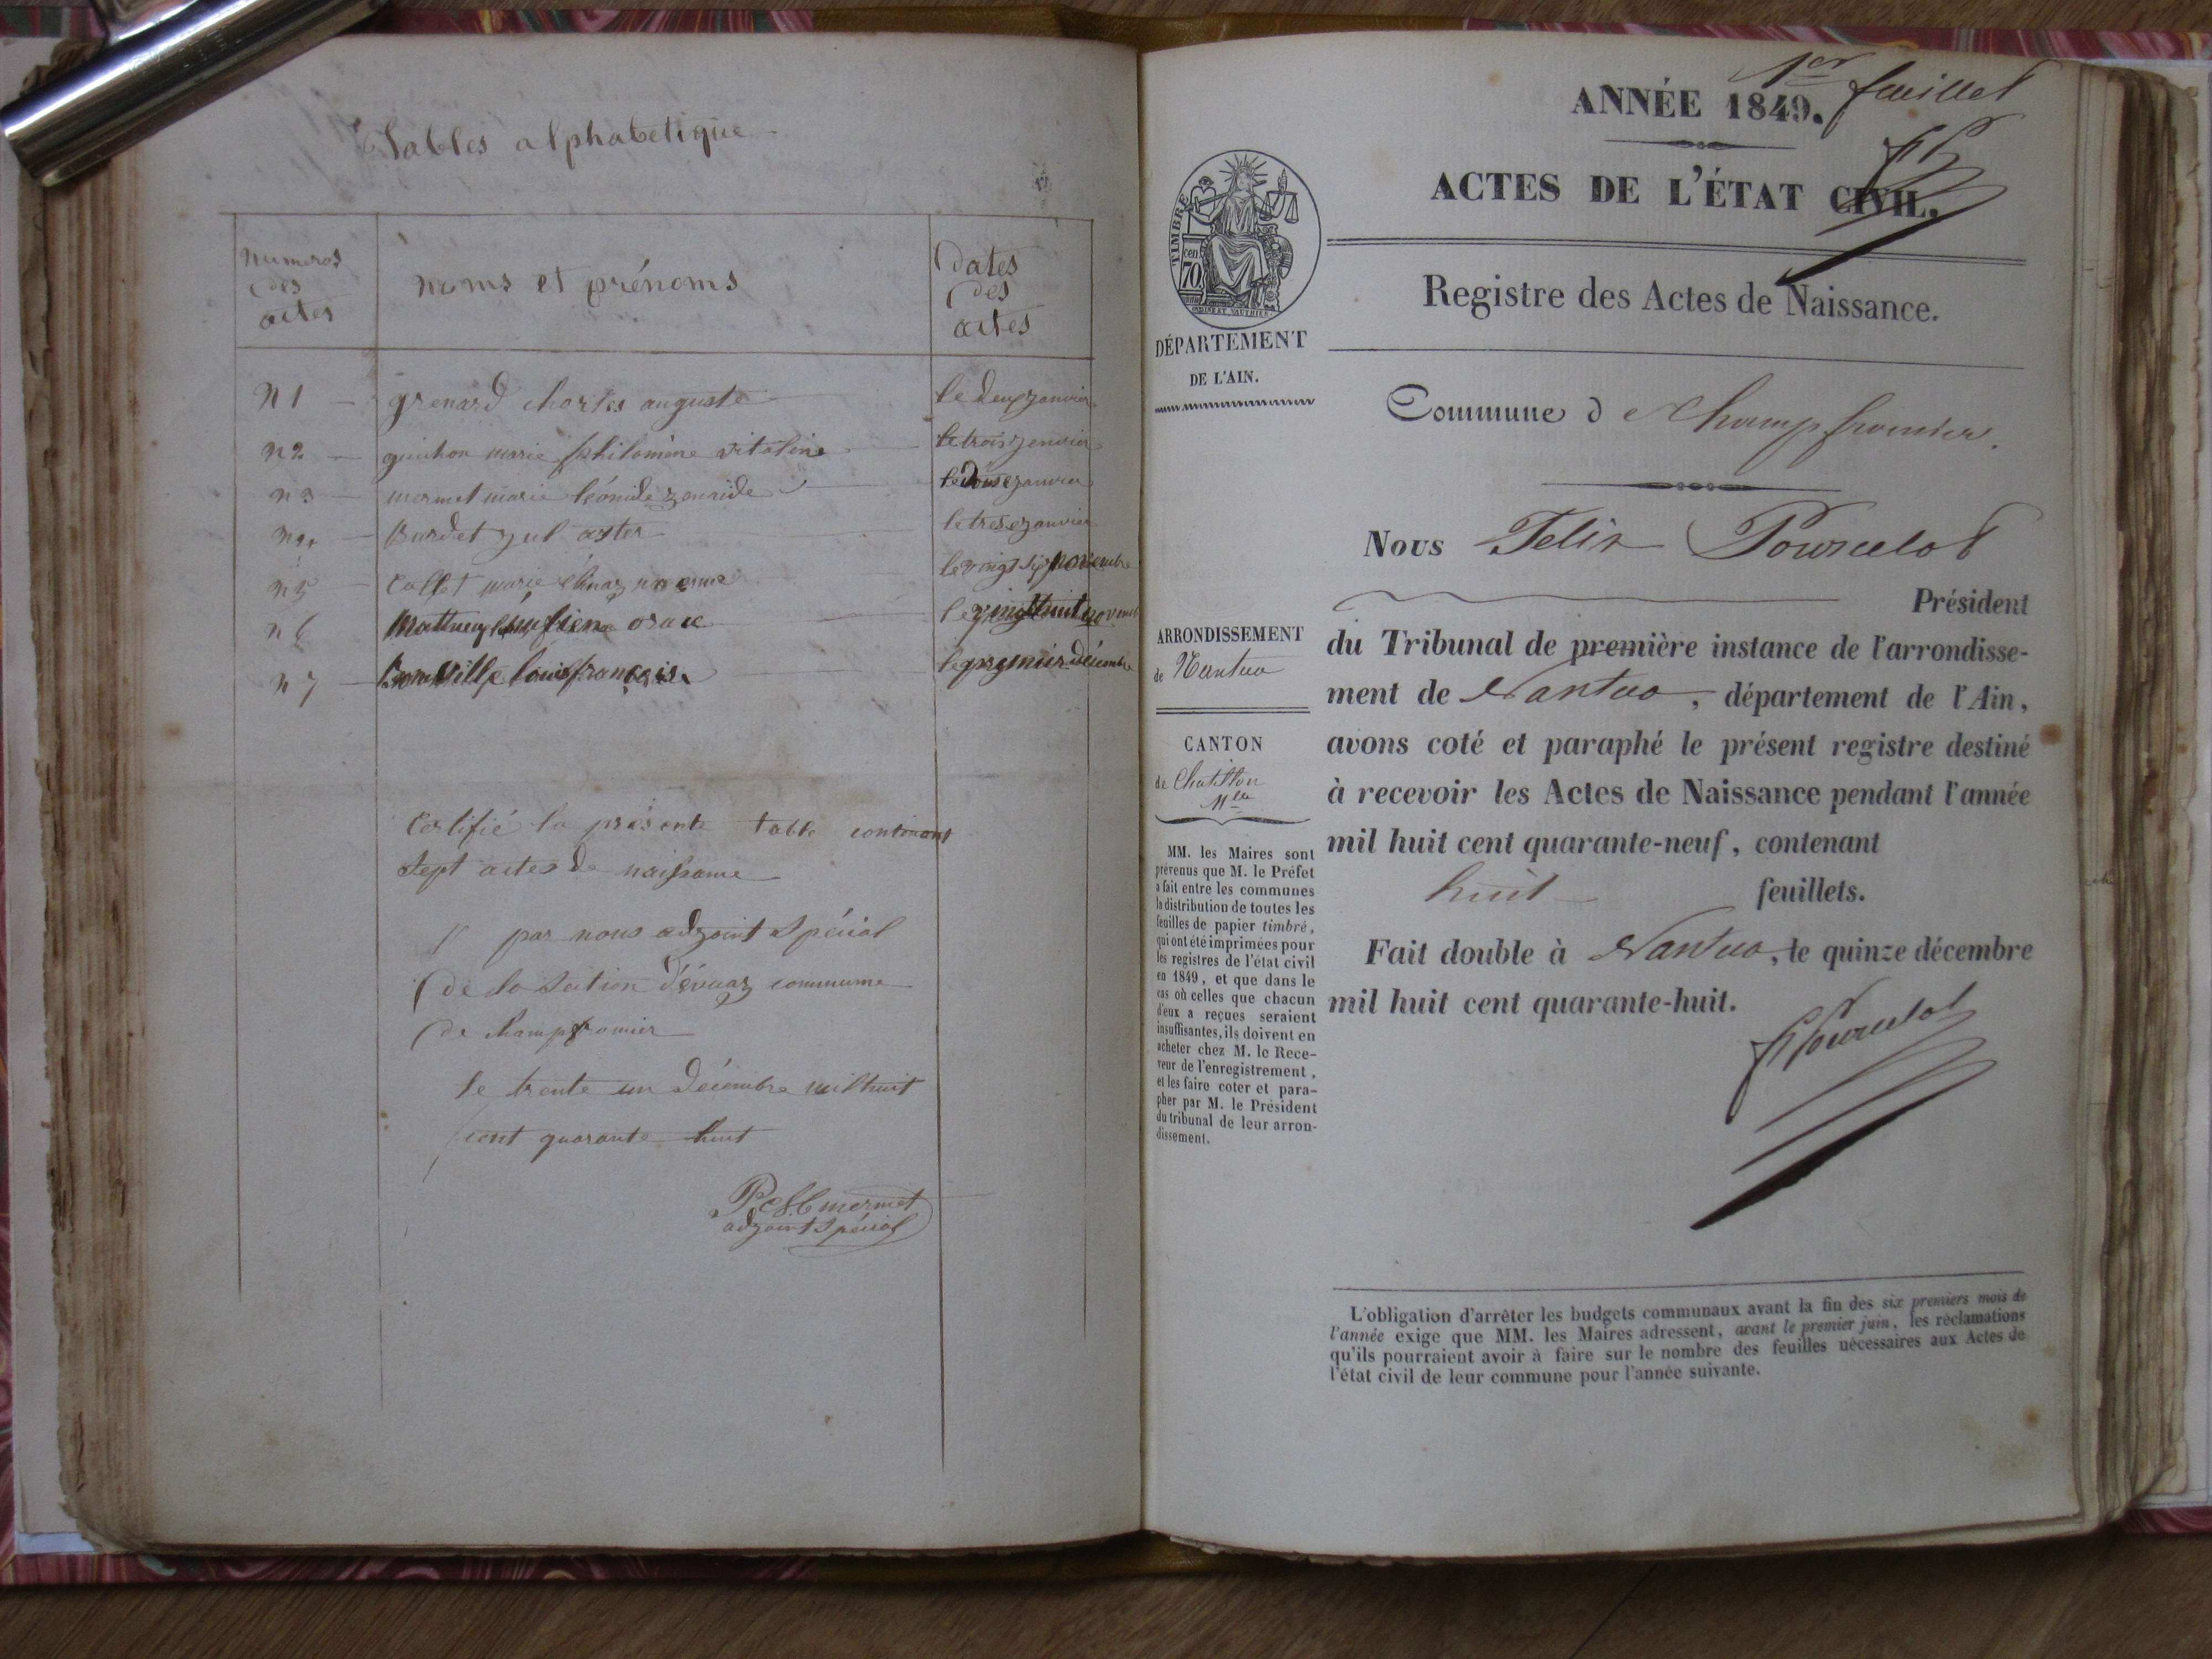 Tables alphabetique
numeros
des
actes
noms et prénoms
Dates
des
actes
n 1 grenard charles auguste le deux janvier
n 2 guichon marie philomène vitaline le trois janvier
n 3 mermet marie léonide zenaide le douse janvier
n 4 Burdet jul le trese janvier
n 5 Collet marie le vingt six novembre
n 6 orace le vingt huit novembre
n 7 louis françois le premier décembre
Certifié la présente table contenant
sept actes de naissance
par nous adjoint spécial
de la section d'évuaz commune
de champfromier
le trente un décembre mil huit
cent quarante huit
mermet
adjoint spécial
1er feuillet
ANNÉE 1849.
ACTES DE L'ÉTAT CIVIL.
Registre des Actes de Naissance.
TIMBRE
70
cen
DÉPARTEMENT
DE L'AIN.
Commune de Champfromier.
Nous Felix Pourcelot
Président
du Tribunal de première instance de l'arrondisse-
ment de Nantua, département de l'Ain,
avons coté et paraphé le présent registre destiné
à recevoir les Actes de Naissance pendant l'année
mil huit cent quarante-neuf, contenant
huit feuillets.
Fait double à Nantua, le quinze décembre
mil huit cent quarante-huit.
Pourcelot
ARRONDISSEMENT
de Nantua
CANTON
de Chatillon
MM. les Maires sont
prévenus que M. le Préfet
a fait entre les communes
la distribution de toutes les
feuilles de papier timbré,
qui ont été imprimées pour
les registres de l'état civil
en 1849, et que dans le
cas où celles que chacun
d'eux a reçues seraient
insuffisantes, ils doivent en
acheter chez M. le Rece-
veur de l'enregistrement,
et les faire coter et para-
pher par M. le Président
du tribunal de leur arron-
dissement.
L'obligation d'arrêter les budgets communaux avant la fin des six premiers mois de
l'année exige que MM. les Maires adressent, avant le premier juin, les réclamations
qu'ils pourraient avoir à faire sur le nombre des feuilles nécessaires aux Actes de
l'état civil de leur commune pour l'année suivante.